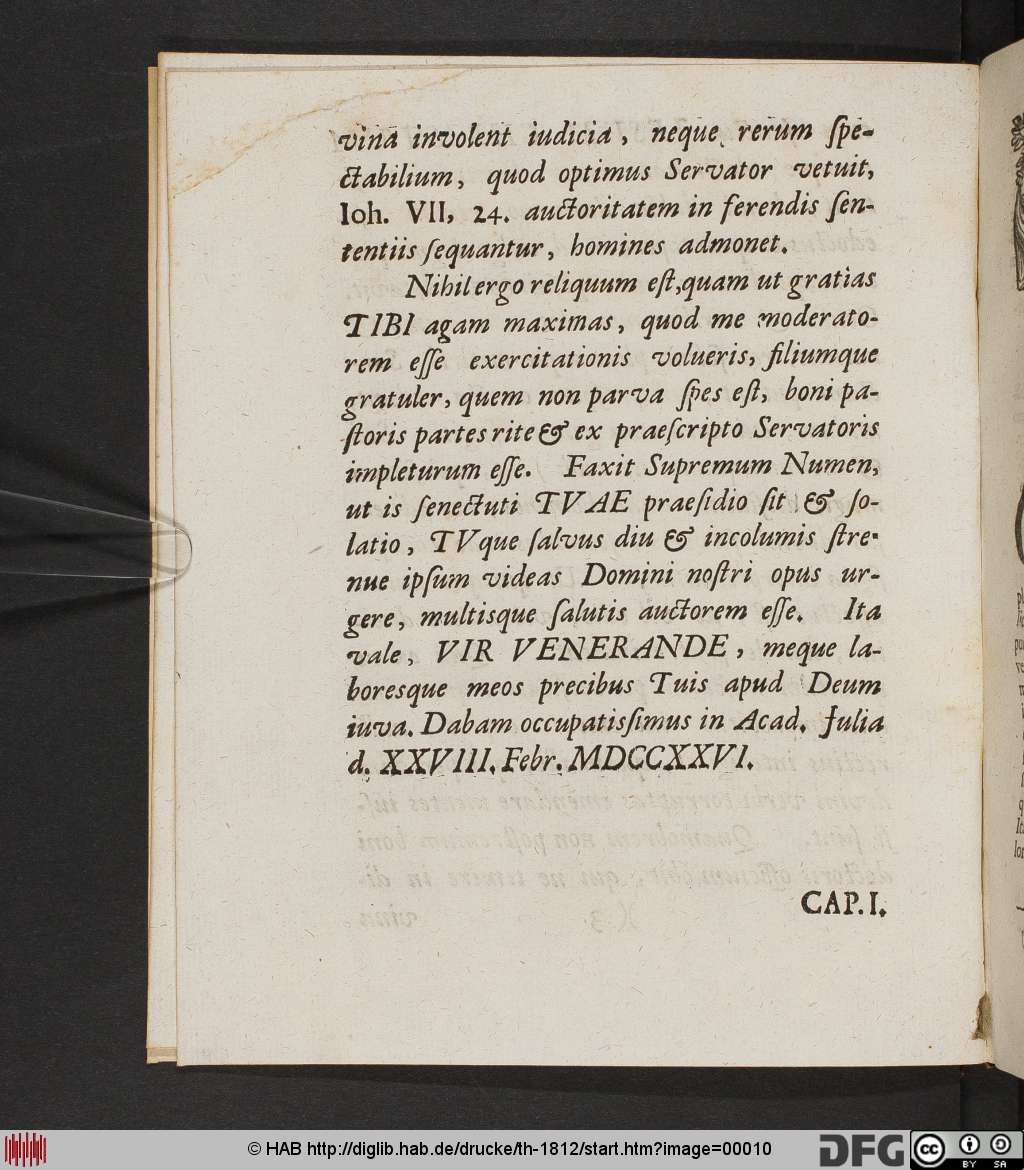 vina involent iudicia, neque rerum ſpe-
ctabilium, quod optimus Servator vetuit,
Ioh. VII, 24. auctoritatem in ferendis ſen-
tentiis ſequantur, homines admonet.
Nihil ergo reliquum eſt, quam ut gratias
TIBI agam maximas, quod me moderato-
rem eſſe exercitationis volueris, filiumque
gratuler, quem non parva ſpes eſt, boni pa-
ſtoris partes rite & ex praeſcripto Servatoris
impleturum eſſe. Faxit Supremum Numen,
ut is ſenectuti TVAE praeſidio ſit & ſo-
latio, TVque ſalvus diu & incolumis ſtre-
nue ipſum videas Domini noſtri opus ur-
gere, multisque ſalutis auctorem eſſe. Ita
vale, VIR VENERANDE, meque la-
boresque meos precibus Tuis apud Deum
iuva. Dabam occupatisſimus in Acad. Julia
d. XXVIII. Febr. MDCCXXVI.
CAP. I.
© HAB http://diglib.hab.de/drucke/th-1812/start.htm?image=00010
DFG
cc BY SA